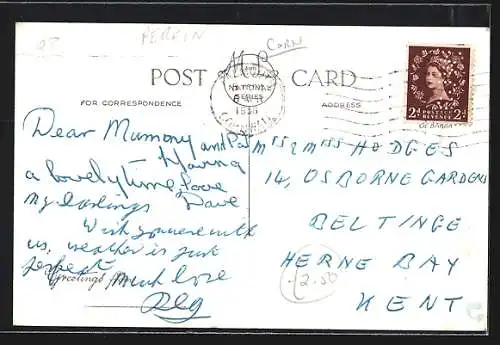 PERFIN
Corn
POST CARD
FOR CORRESPONDENCE
NATIONAL
SERIES
ADDRESS
2d POSTAGE 2d
REVENUE
Dear Mummy and Pa
Having
a lovely time, love
my darlings Dave
Wish you were with
us, weather is just
perfect
Greetings from
Much love
Mrs & Mrs HODGES
14, OSBORNE GARDENS
BELTINGE
HERNE BAY
KENT
2.50